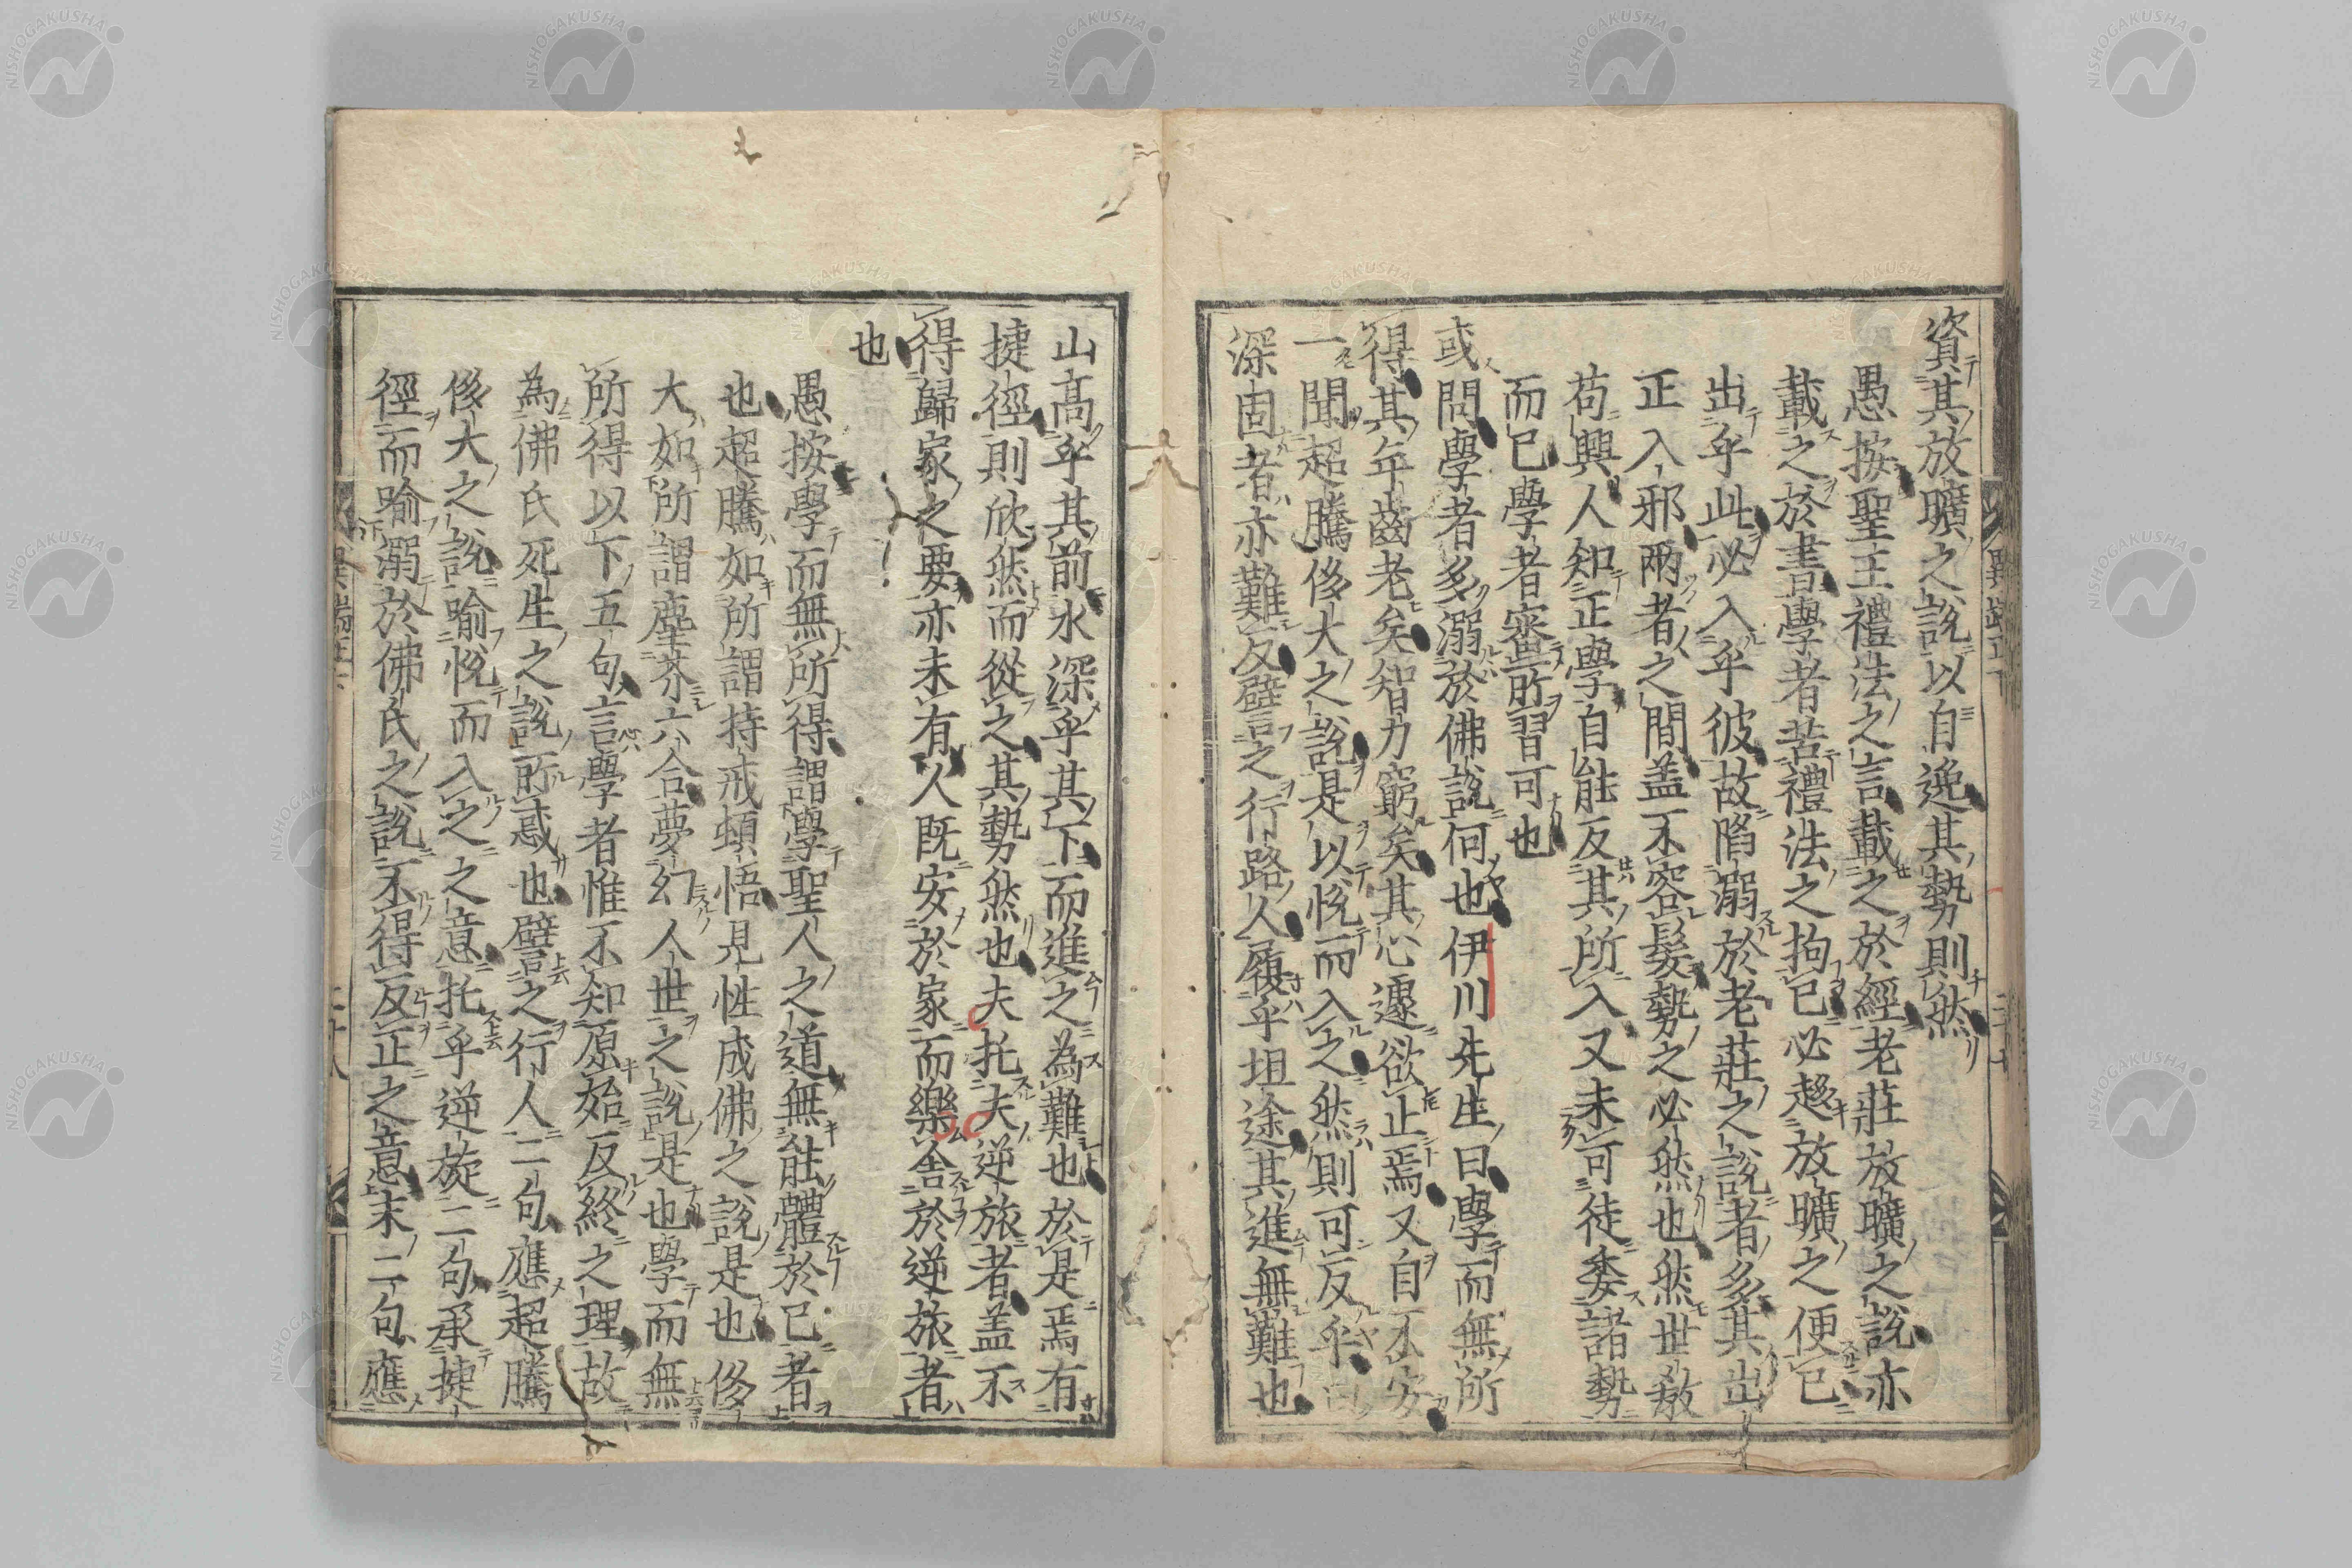 資其放曠之説以自逸其勢則然
愚按聖王禮法之言載之於經老莊放曠之説亦
載之於書學者苦禮法之拘已必趍放曠之便已
出乎此必入乎彼故陷溺於老莊之説者多其出
正入邪兩者之間盖不容髮勢之必然也然世敎
苟興人知正學自能反其所入又未可徒委諸勢
而已學者審所習可也
或問學者多溺於佛説何也伊川先生曰學而無所
得其年齒老矣智力窮矣其心遽欲止焉又自不安
一聞超騰侈大之説是以悦而入之然則可反乎曰
深固者亦難反譬之行路人履乎坦途其進無難也
山高乎其前水深乎其下而進之為難也於是焉有
捷徑則欣然而從之其勢然也夫托夫逆旅者盖不
得歸家之要亦未有人既安於家而樂舍於逆旅者
也
愚按學而無所得謂學聖人之道無能體於已者
也超騰如所謂持戒頓悟見性成佛之説是也侈
大如所謂塵芥六合夢幻人世之説是也學而無
所得以下五句言學者惟不知原始反終之理故
為佛氏死生之説所惑也譬之行人二句應超騰
侈大之説喻悦而入之之意托乎逆旅二句承捷
徑而喻溺於佛氏之説不得反正之意末二句應